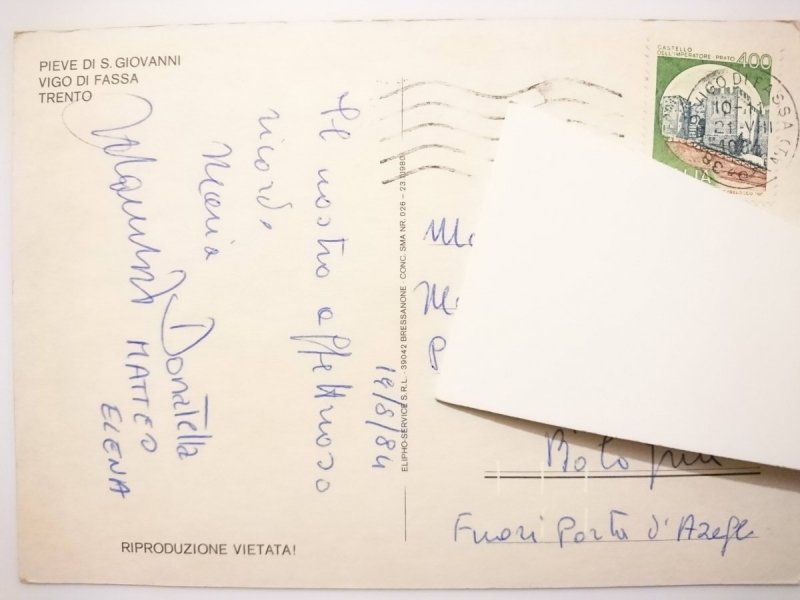 PIEVE DI S. GIOVANNI
VIGO DI FASSA
TRENTO
Il nostro affettuoso
ricordo
Maria
Donatella
MATTEO
ELENA
19/8/84
ELIPHO-SERVICE S.R.L. - 39042 BRESSANONE CONC. SMA NR. 026 - 23
RIPRODUZIONE VIETATA!
CASTELLO
DELL'IMPERATORE - PRATO
400
VIGO DI FASSA (TN)
10-11
21-VIII
1984
Bologna
Fuori Porta d'Azegl